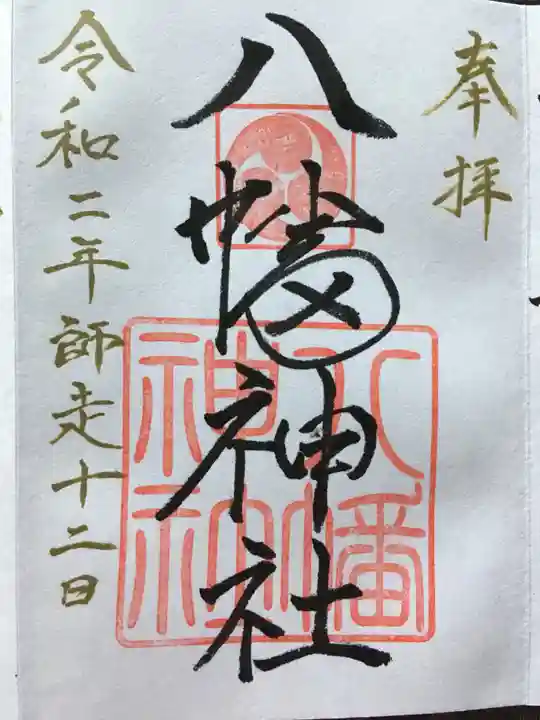 奉拝
八幡神社
八幡
神社
令和二年師走十二日